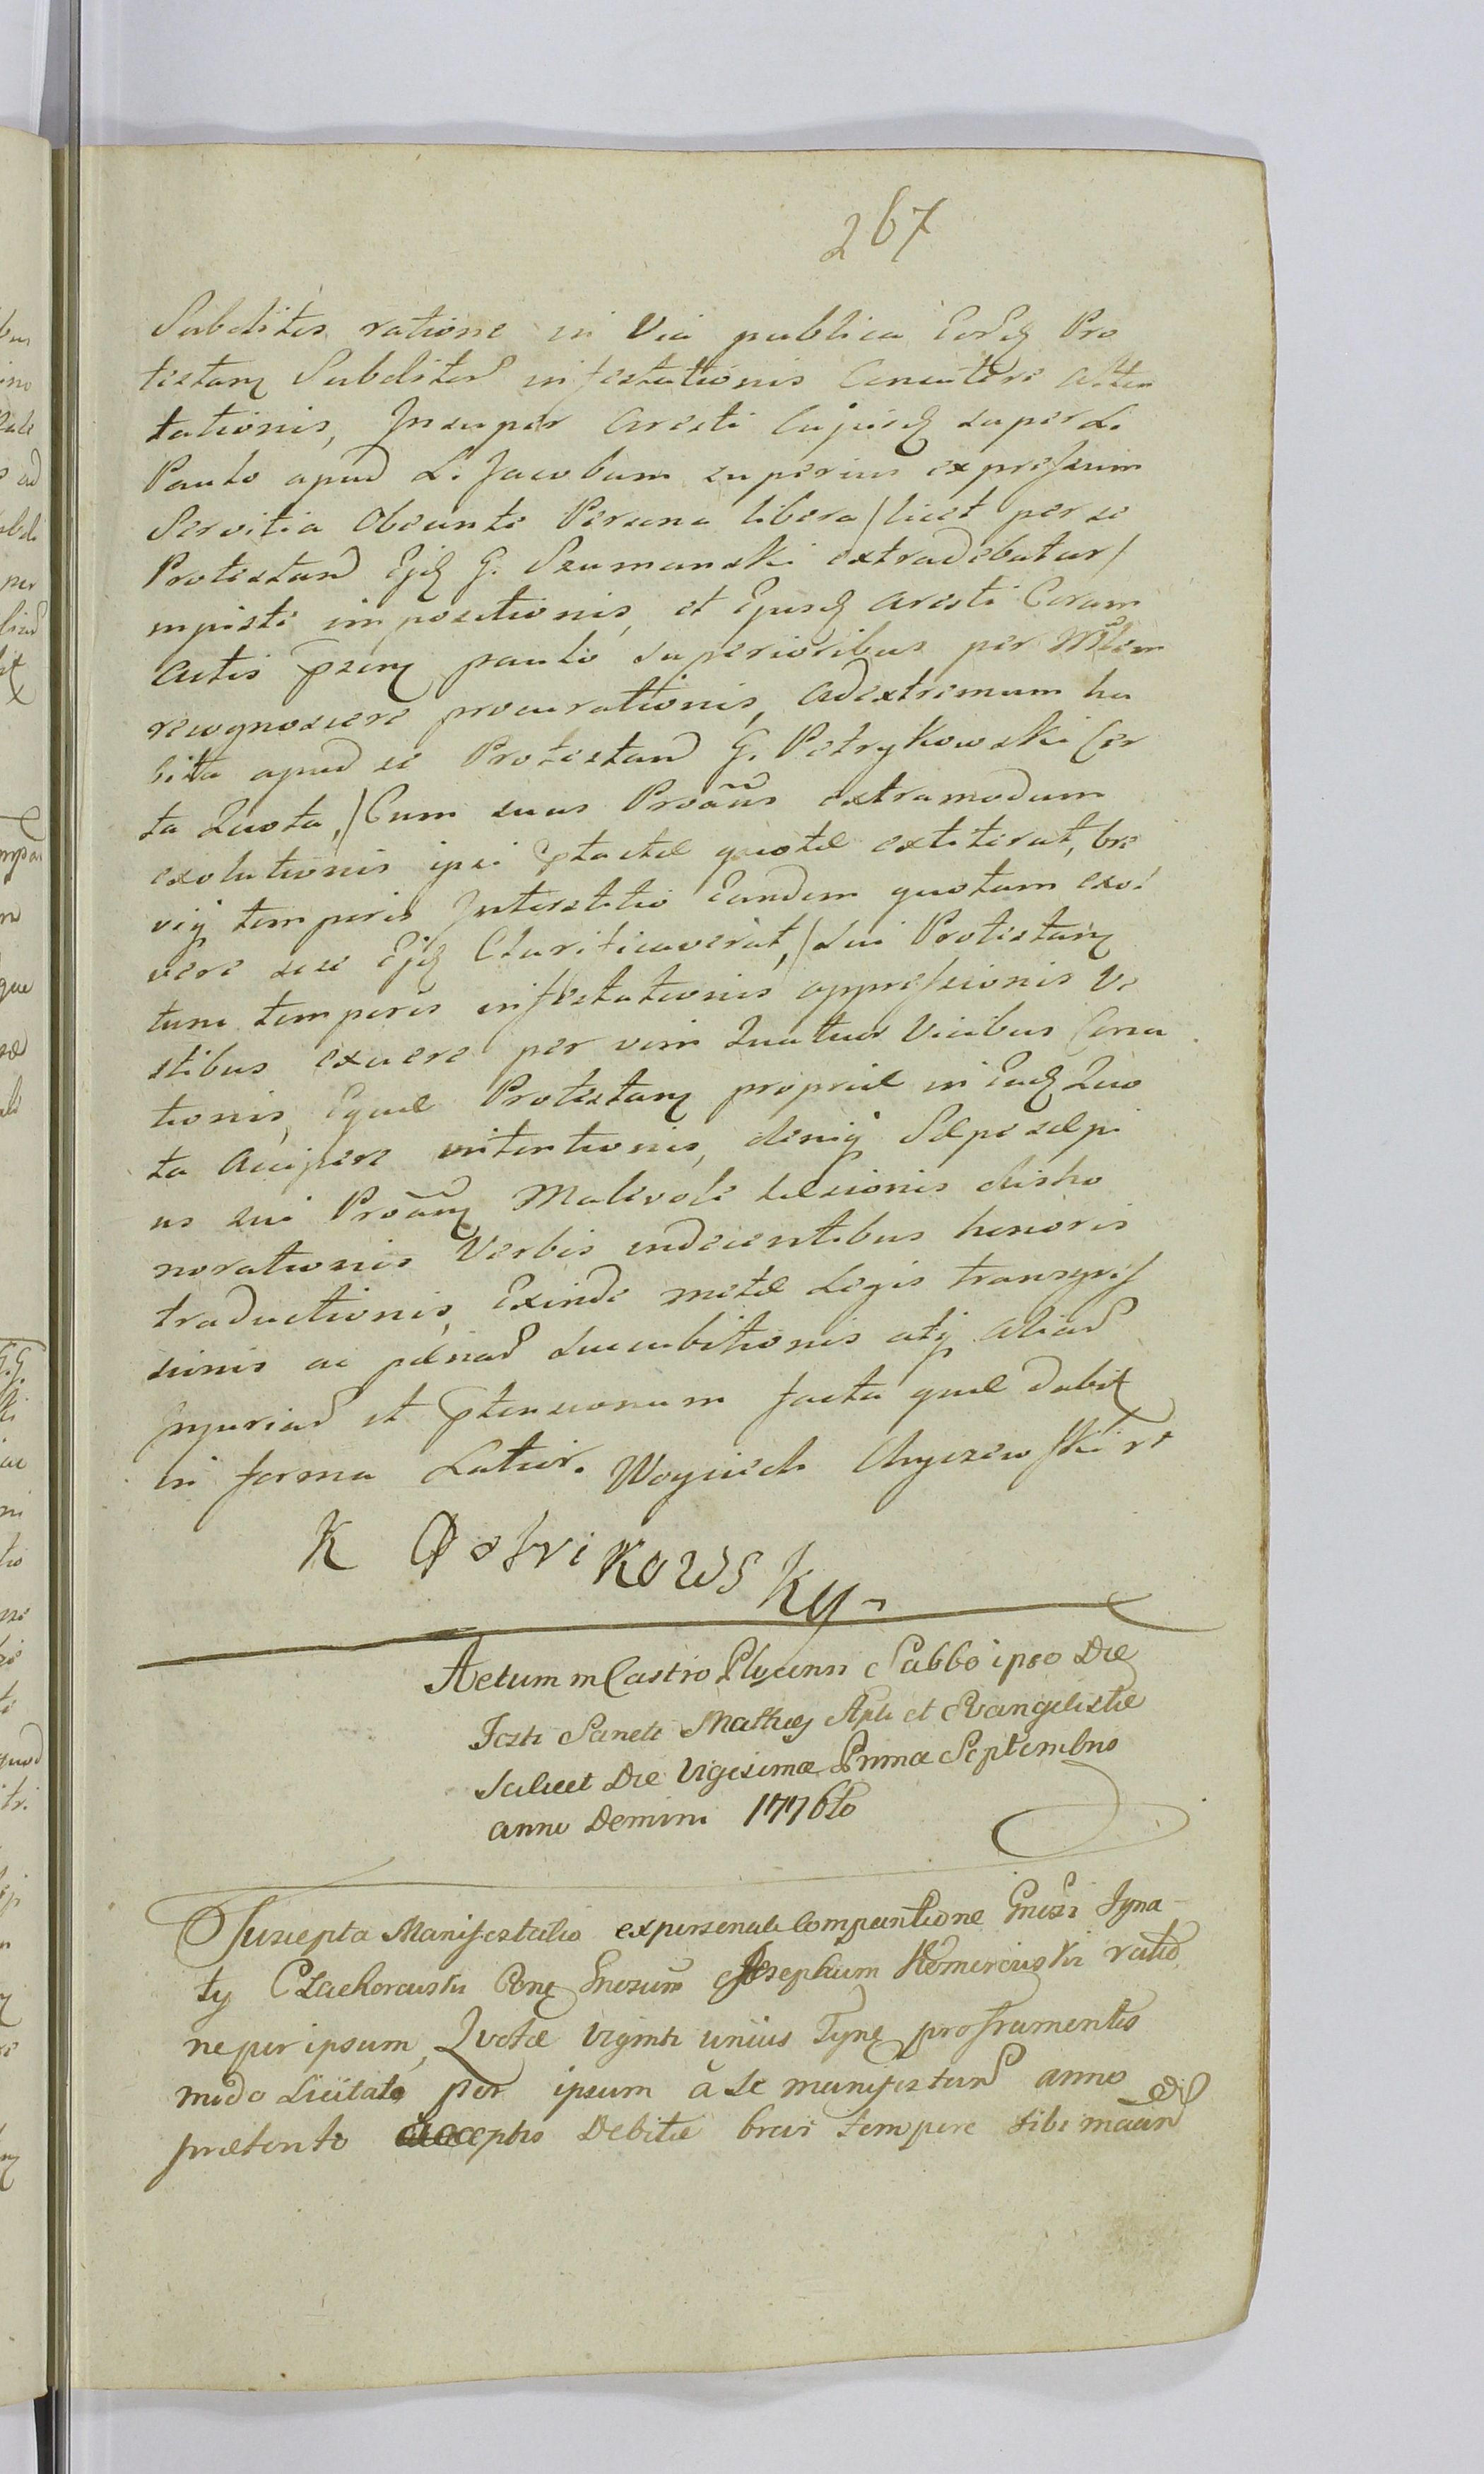 267
Subditos ratione in Via publica Eorũq Pro
testanq Subditorũ infestationis Conautore atten
tationis, Insuper aresti cujusq super L.
Paulo apud L. Jacobum superius expressum
Servitia Obeunte Persona libera / licet per se
Protestand Ejq G. Szumanski extradebatur /
injuste impositionis, et Ejusq aresti Coram
actis pzenq paulo superioribus per Mlem
recognoscere procurationis, adextremum ha
bita apud se Protestand G. Petrykowski Cer
ta Quota, / Cum suus Proãus extramodum
exolutionis ipsi ptactæ quotæ extiterat, bre
viq temporis Interstitio Eandem quotam exol
vere sese Ejq Clarificaverat, / sui Protestanq
tunc temporis infestationis oppressionis Ve
stibus exuere per vim Quatuor Vicibus Cona
tionis, Equæ Protestanq propriæ in Eadq Quo
ta Accipere intentionis, deniq Sæpe sæpi
us sui Proãnq Malevole læsionis disho
norationis Verbis indecentibus honoris
traductionis, Exinde metæ Legis transgres
sionis ac pænarũ Succubitionis atq aliarũ
Injuriarũ et ptensionum facta quæ dabit
in forma Latior. Woyciech Chyczewski
K Ostrikowsky
Actum in Castro Plocenn Sabbo ipso Die
Festi Sancti Mathæj Apli et Evangelistæ
scilicet Die Vigesima Prima Septembris
anno Domini 1776to
Suscepta Manifestatio ex personali comparitione Gnosi Igna-
tij Czachorowski Cone Gnosum Josephum Nõmierowski ratio
ne per ipsum, Quotæ viginti unius Tynę pro frumentis
modo licitato per ipsum à se manifestanũ anno
prætento acceptis Debitæ brevi tempore sibi